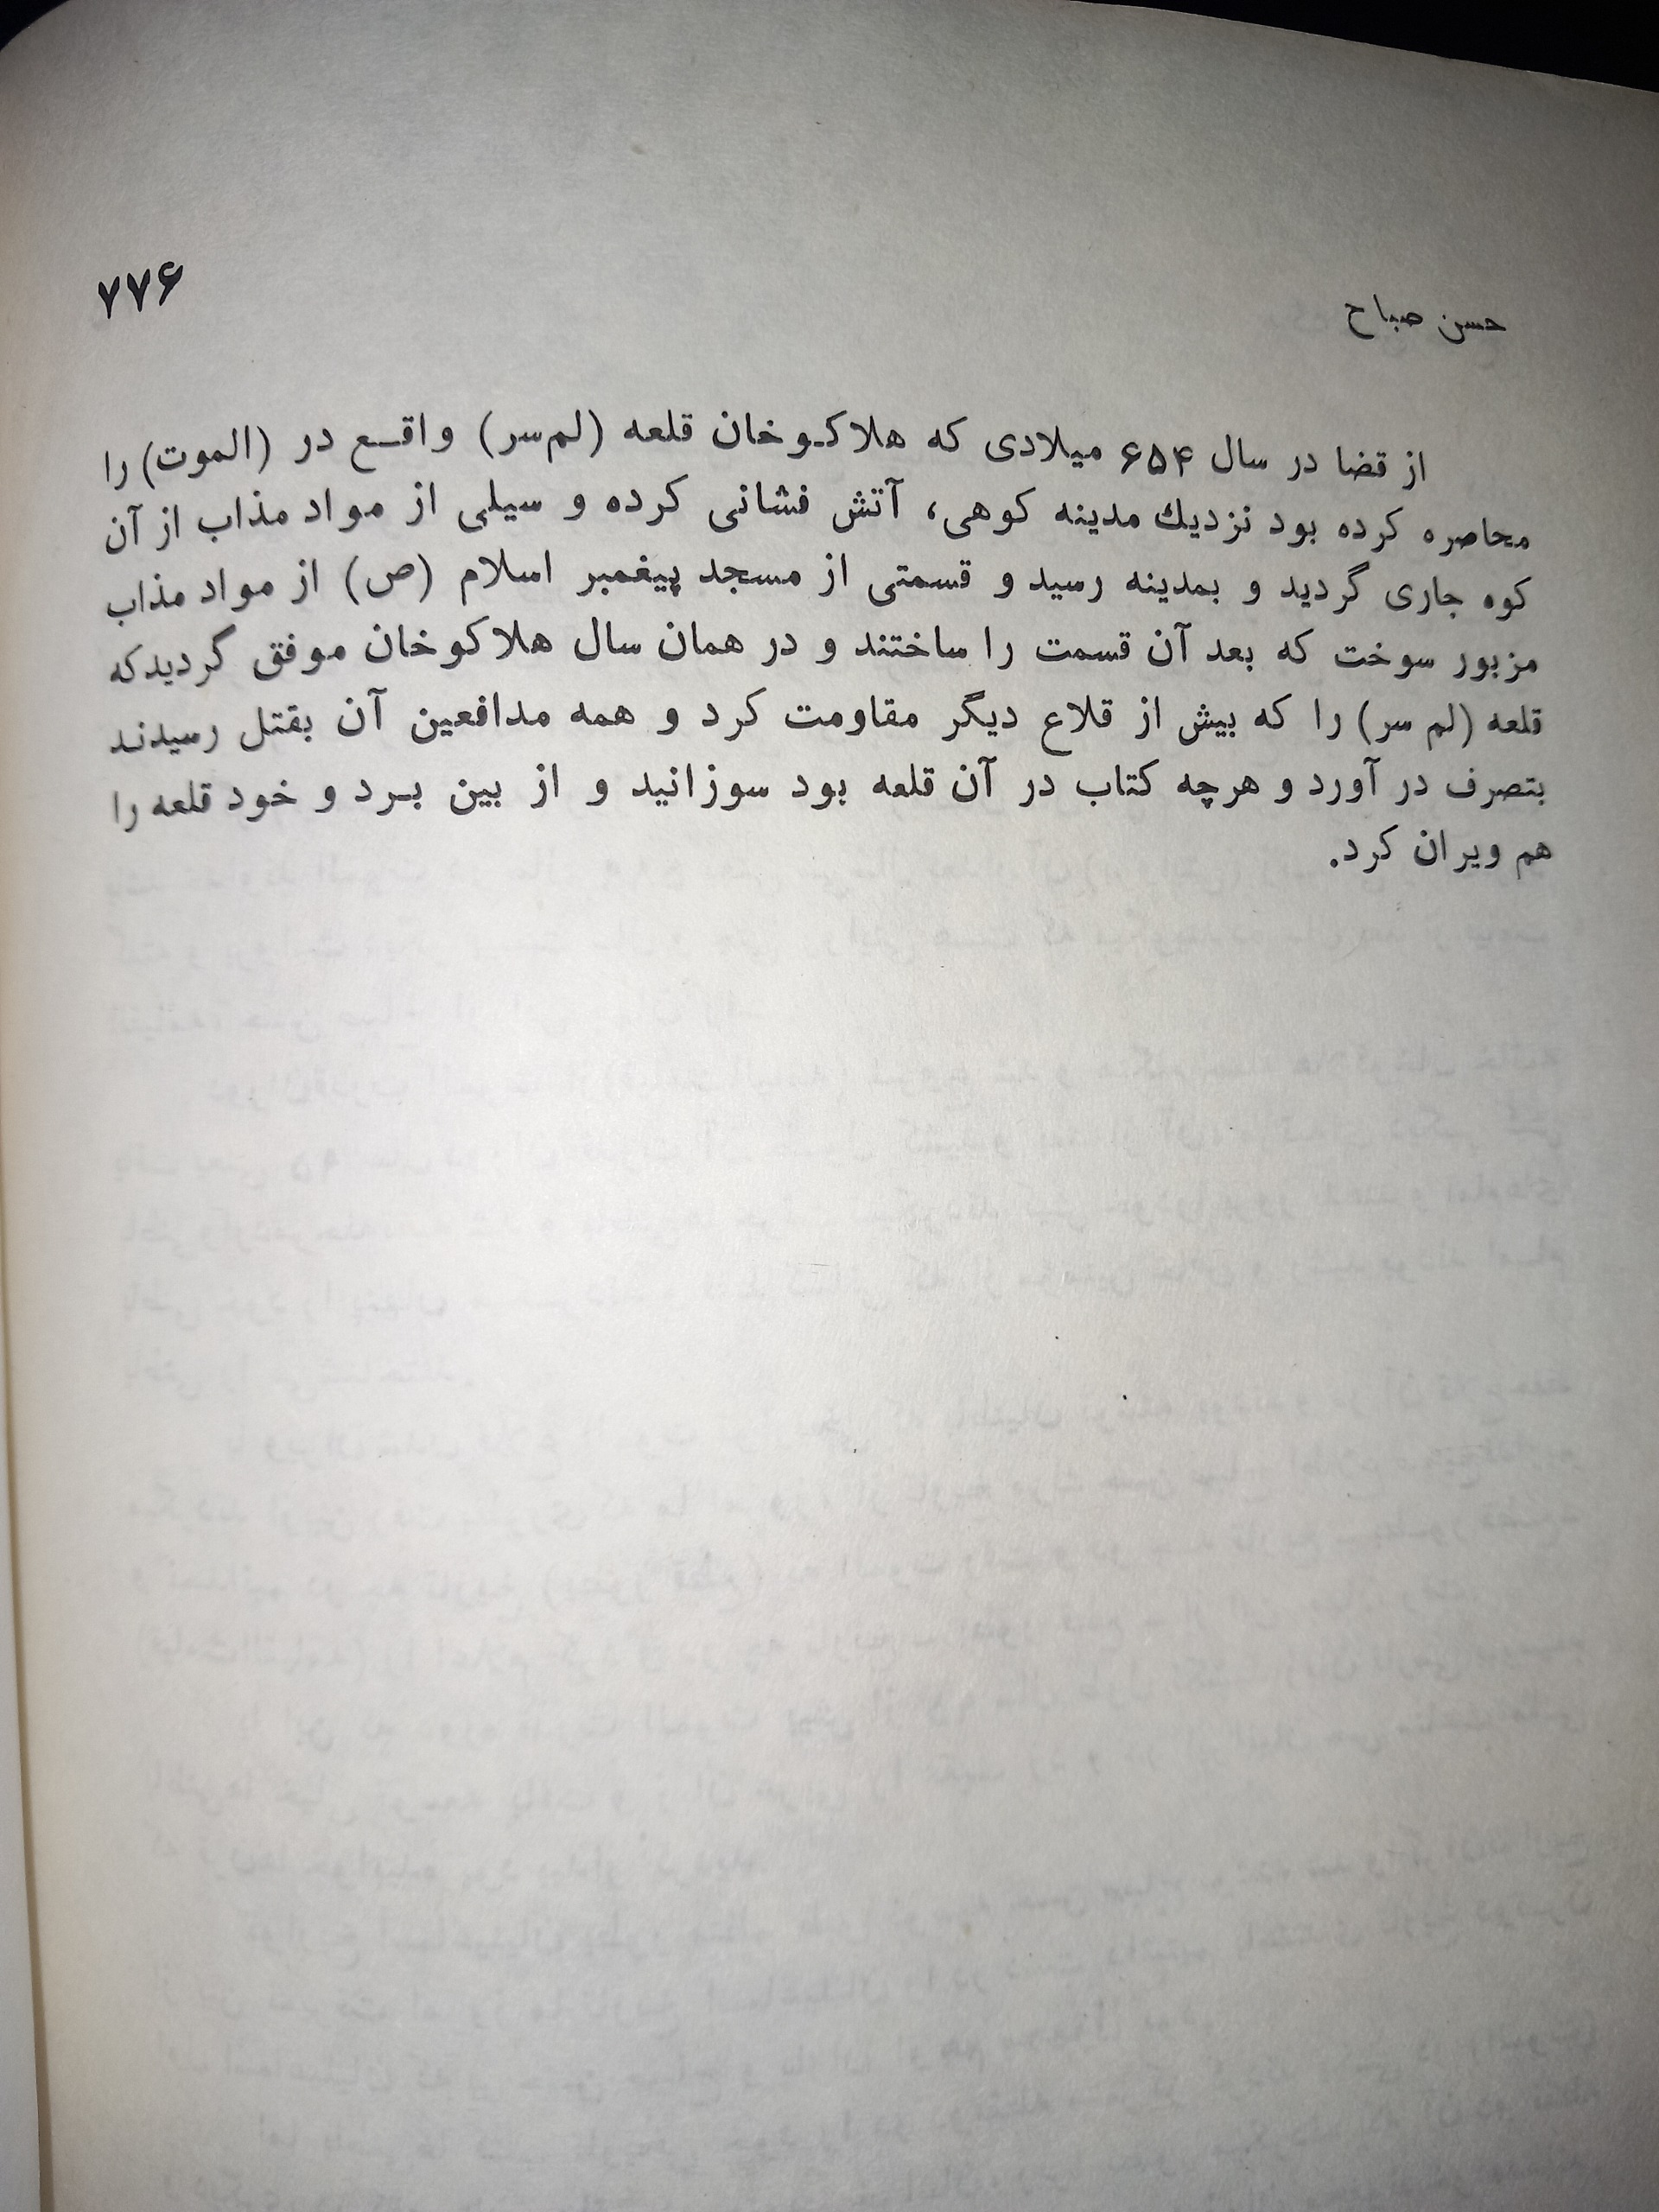 حسن صباح
۷۷۶
از قضا در سال ۶۵۴ میلادی که هلاکوخان قلعه (لم‌سر) واقع در (الموت) را
محاصره کرده بود نزدیك مدینه کوهی، آتش فشانی کرده و سیلی از مواد مذاب از آن
کوه جاری گردید و بمدینه رسید و قسمتی از مسجد پیغمبر اسلام (ص) از مواد مذاب
مزبور سوخت که بعد آن قسمت را ساختند و در همان سال هلاکوخان موفق گردیدکه
قلعه (لم سر) را که بیش از قلاع دیگر مقاومت کرد و همه مدافعین آن بقتل رسیدند
بتصرف در آورد و هرچه کتاب در آن قلعه بود سوزانید و از بین برد و خود قلعه را
هم ویران کرد.